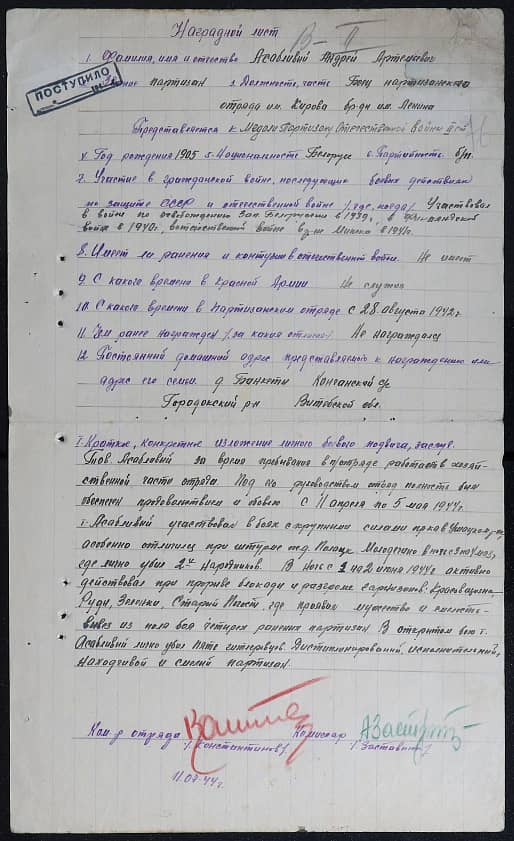 Наградной лист
В-II
1. Фамилия, имя и отчество Асабливий Андрей Артемович
ПОСТУПИЛО
партизан 3. Должность, часть Боец партизанского
отряда им. Кирова бр-ди им. Ленина
Представляется к Медали Партизану Отечественной Войны
Год рождения 1905 5. Национальность Белорус 6. Партийность б/п.
7. Участие в гражданской войне, последующих боевых действиях
по защите СССР и отечественной войне /где, когда/ Участвовал
в войне по освобождению Зап. Белоруссии в 1939г, в Финляндской
войне в 1940г, вотечественной войне в р-не Минска в 1941г.
8. Имеет ли ранения и контузии в отечественной войне. Не имеет
9. С какого времени в Красной Армии Не служил
10. С какого времени в партизанском отряде с 28 августа 1942г.
11. Чем ранее награжден /за какия отличия/ Не награждался
12. Постоянный домашний адрес представляемого к награждению или
адрес его семьи. д
Городокский р-н Витебской обл.
1. Краткое, конкретное изложение личного боевого подвига, заслуг.
Тов. Асабливий за время пребывания в п/отряде работает в хозяй-
ственной части отряда. Под его руководством отряд полность был
обеспечен продовольствием и обовью. С 11 апреля по 5 мая 1944г.
т. Асабливий участвовал в боях с крупными силами пр-ка в
особенно отличился при штурме ж.д. Полоцк Молодечно в ночь с 3 на 4 мая,
где лично убил 2х Народников. В ночь с 1 на 2 июня 1944г активно
действовал при прорыве блокады и разгроме гарнизонов:
Руды, Зеленки. Старий Погост где проявил мужество и смелость
вывез из поля боя четырех раненых партизан В открытом бою т.
Асабливий лично убил пять гитлеровцев. Дистиплинированный, исполнительный,
находчивой и смелий партизан.
Ком-р отряда Комиссар
/Константинов/. /Заставин/
11.07.44г.